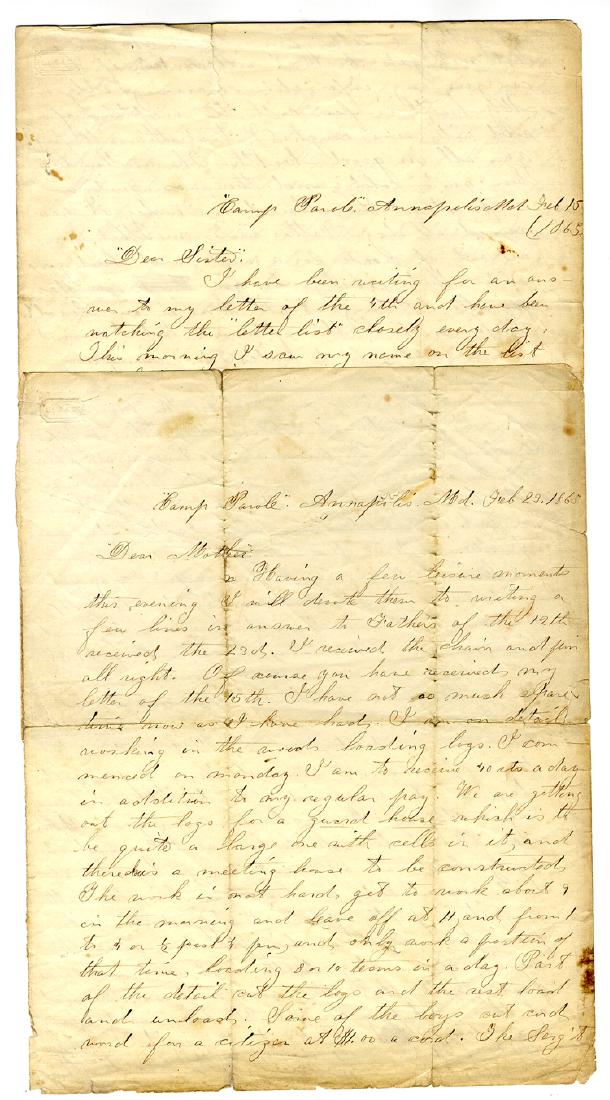 "Camp Parole" Annapolis Md Feb 15
1865
"Dear Sister".
I have been waiting for an ans-
wer to my letter of the 4th and have been
watching the "letter list" closely every day.
This morning I saw my name on the list
"Camp Parole". Annapolis. Md. Feb 23. 1865
"Dear Mother"
Having a few leisure moments
this evening I will devote them to writing a
few lines in answer to Fathers of the 19th
received the 23d. I received the chain and pin
all right. Of course you have received my
letter of the 15th. I have not so much spare
time now as I have had. I am on detail
working in the woods loading logs. I com-
menced on monday. I am to receive 40 cts a day
in addition to my regular pay. We are getting
out the logs for a guard house which is to
be quite a large one with cells in it, and
there is a meeting house to be constructed
The work is not hard, get to work about 9
in the morning and leave off at 11, and from 1
to 3 or ½ past 3 pm, and only work a portion of
that time, loading 8 or 10 teams in a day. Part
of the detail cut the logs and the rest load
and unload. Some of the boys cut cord
wood for a citizen at $1.00 a cord. The Serg't